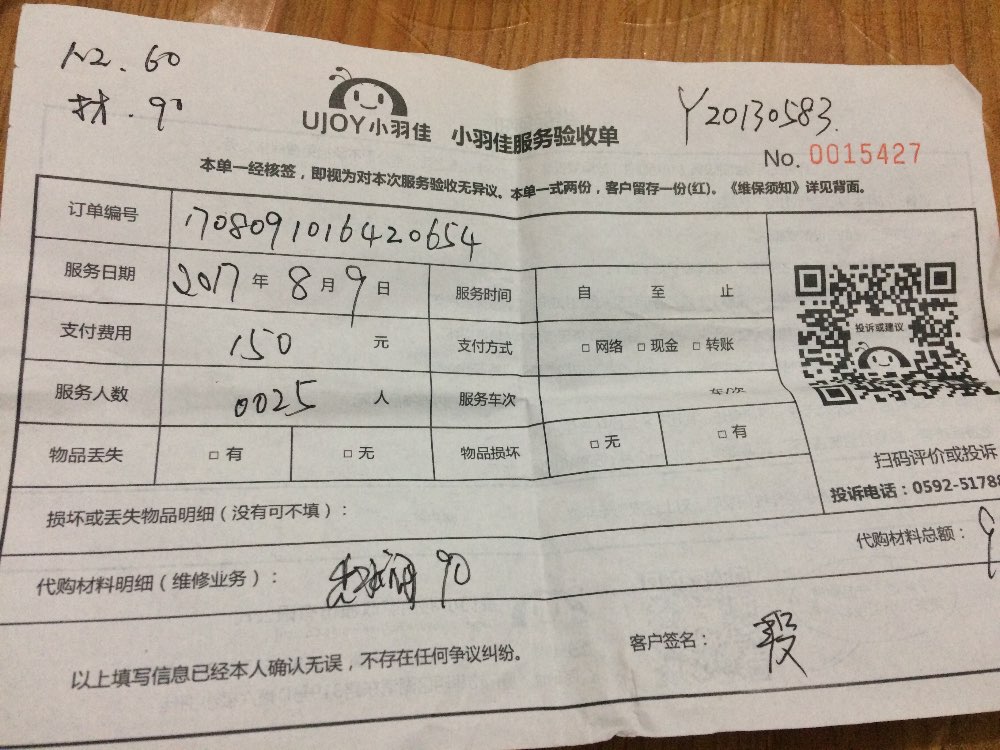 人工.60
材.90
UJOY小羽佳 小羽佳服务验收单
Y20130583.
No. 0015427
本单一经核签，即视为对本次服务验收无异议。本单一式两份，客户留存一份(红)。《维保须知》详见背面。
订单编号 1708091016420654
服务日期 2017年8月9日 服务时间 自 至 止
支付费用 150 元 支付方式 □网络 □现金 □转账
投诉或建议
服务人数 0025 人 服务车次 车次
物品丢失 □有 □无 物品损坏 □无 □有
扫码评价或投诉
投诉电话：0592-51788
损坏或丢失物品明细（没有可不填）：
代购材料明细（维修业务）： 90 代购材料总额：
以上填写信息已经本人确认无误，不存在任何争议纠纷。 客户签名：